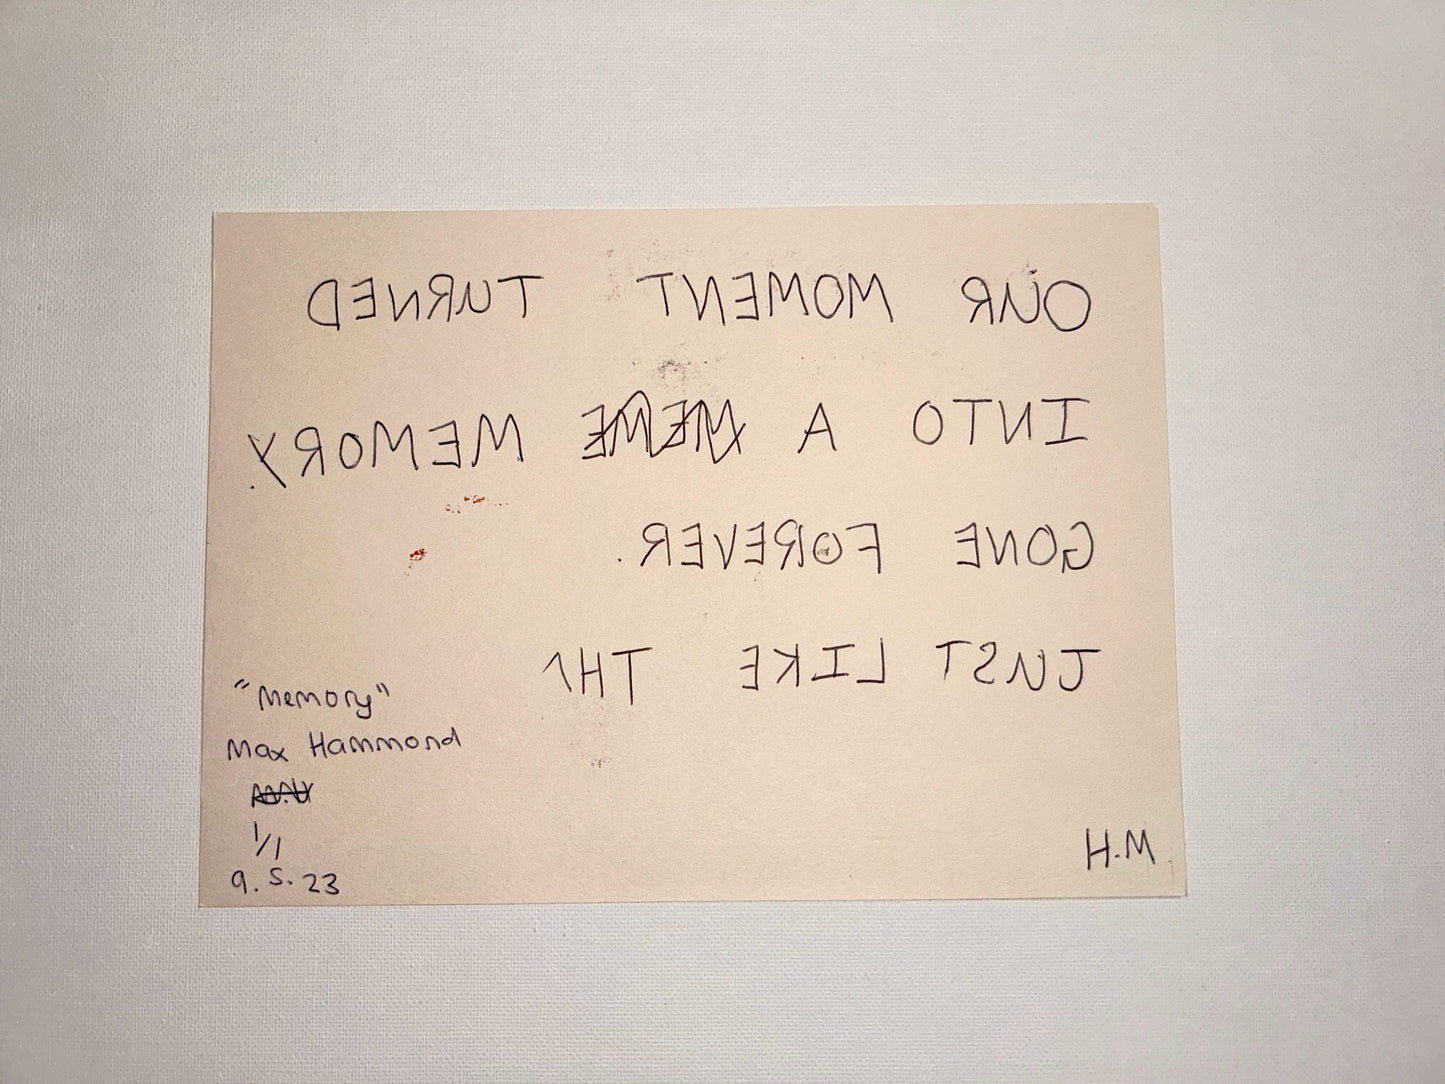 OUR MOMENT TURNED
INTO A MEME MEMORY.
GONE FOREVER.
JUST LIKE TH
"Memory"
Max Hammond
1/1
9.5.23
M.H